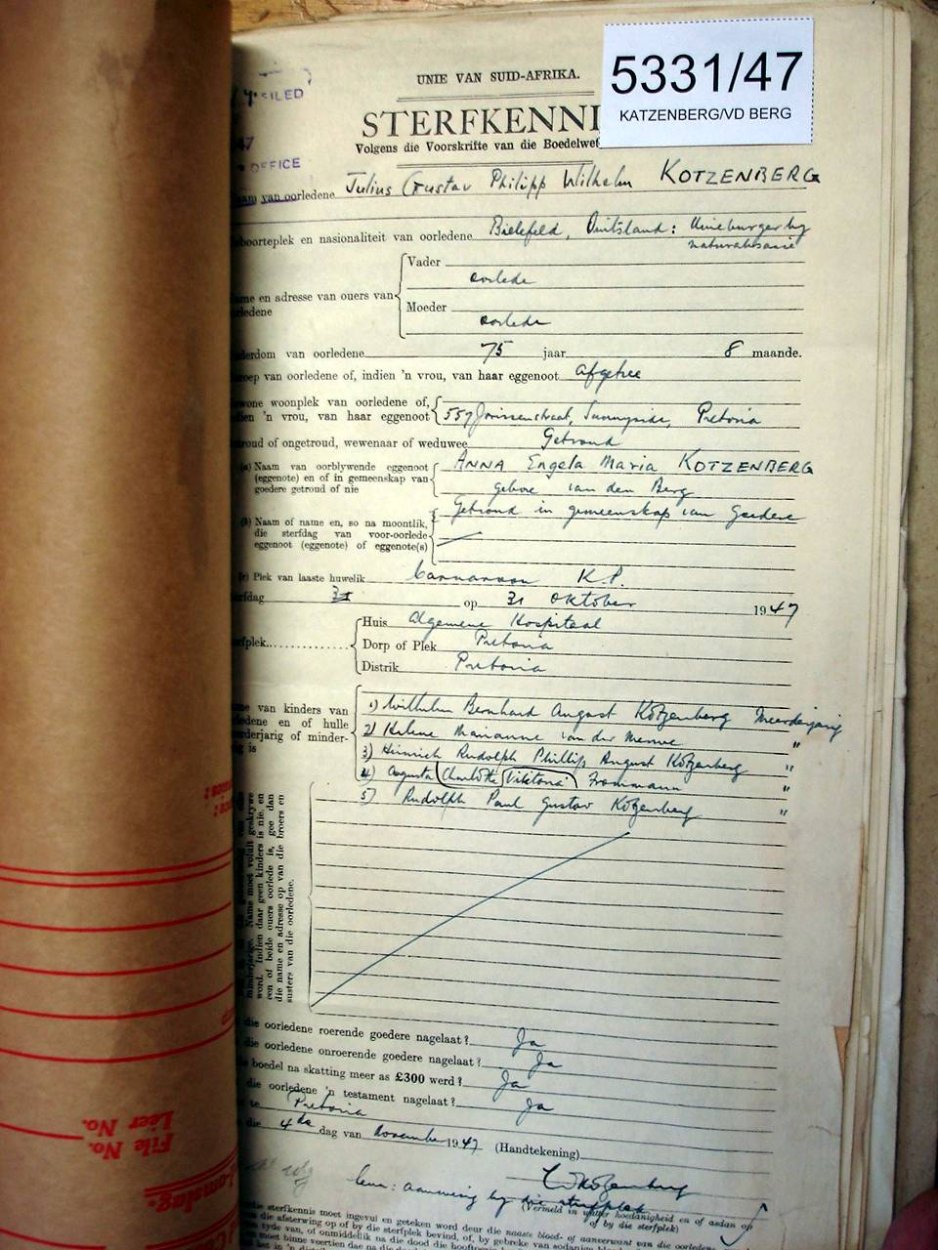 5331/47
KATZENBERG/VD BERG
UNIE VAN SUID-AFRIKA.
FILED
STERFKENNI
47
Volgens die Voorskrifte van die Boedelwet
OFFICE
van oorledene Julius Gustav Philipp Wilhelm KOTZENBERG
boorteplek en nasionaliteit van oorledene Bielefeld, Duitsland: Unieburger by
naturalisasie
Vader
oorlede
me en adresse van ouers van
rledene
Moeder
oorlede
derdom van oorledene 75 jaar 8 maande.
oep van oorledene of, indien 'n vrou, van haar eggenoot afgetree
wone woonplek van oorledene of,
dien 'n vrou, van haar eggenoot 557 Jorissenstraat, Sunnyside, Pretoria
roud of ongetroud, wewenaar of weduwee Getroud
(a) Naam van oorblywende eggenoot
(eggenote) en of in gemeenskap van
goedere getroud of nie
ANNA Engela Maria KOTZENBERG
gebore van den Berg
Getroud in gemeenskap van Goedere
(b) Naam of name en, so na moontlik,
die sterfdag van voor-oorlede
eggenoot (eggenote) of eggenote(s)
(c) Plek van laaste huwelik Carnarvon K.P.
rfdag op 31 Oktober 1947
Huis Algemene Hospitaal
rfplek Dorp of Plek Pretoria
Distrik Pretoria
me van kinders van
ledene en of hulle
erderjarig of minder-
ig is
1) Wilhelm Bernhard August Kotzenberg Meerderjarig
2) Helene Marianne van der Merwe "
3) Heinrich Rudolph Phillip August Kotzenberg "
4) Augusta (Charlotte Viktoria) Frommann "
5) Rudolph Paul Gustav Kotzenberg "
Name moet voluit geskrywe
word. Indien daar geen kinders is nie, en
een of beide ouers oorlede is, gee dan
die name en adresse op van die broers en
susters van die oorledene.
die oorledene roerende goedere nagelaat? Ja
die oorledene onroerende goedere nagelaat? Ja
boedel na skatting meer as £300 werd? Ja
die oorledene 'n testament nagelaat? Ja
te Pretoria
die 4de dag van November 1947 (Handtekening)
Kotzenberg
aanwesig by die sterfplek
(Vermeld in watter hoedanigheid en of aldan op
of by die sterfplek)
File No.
Lêer No.